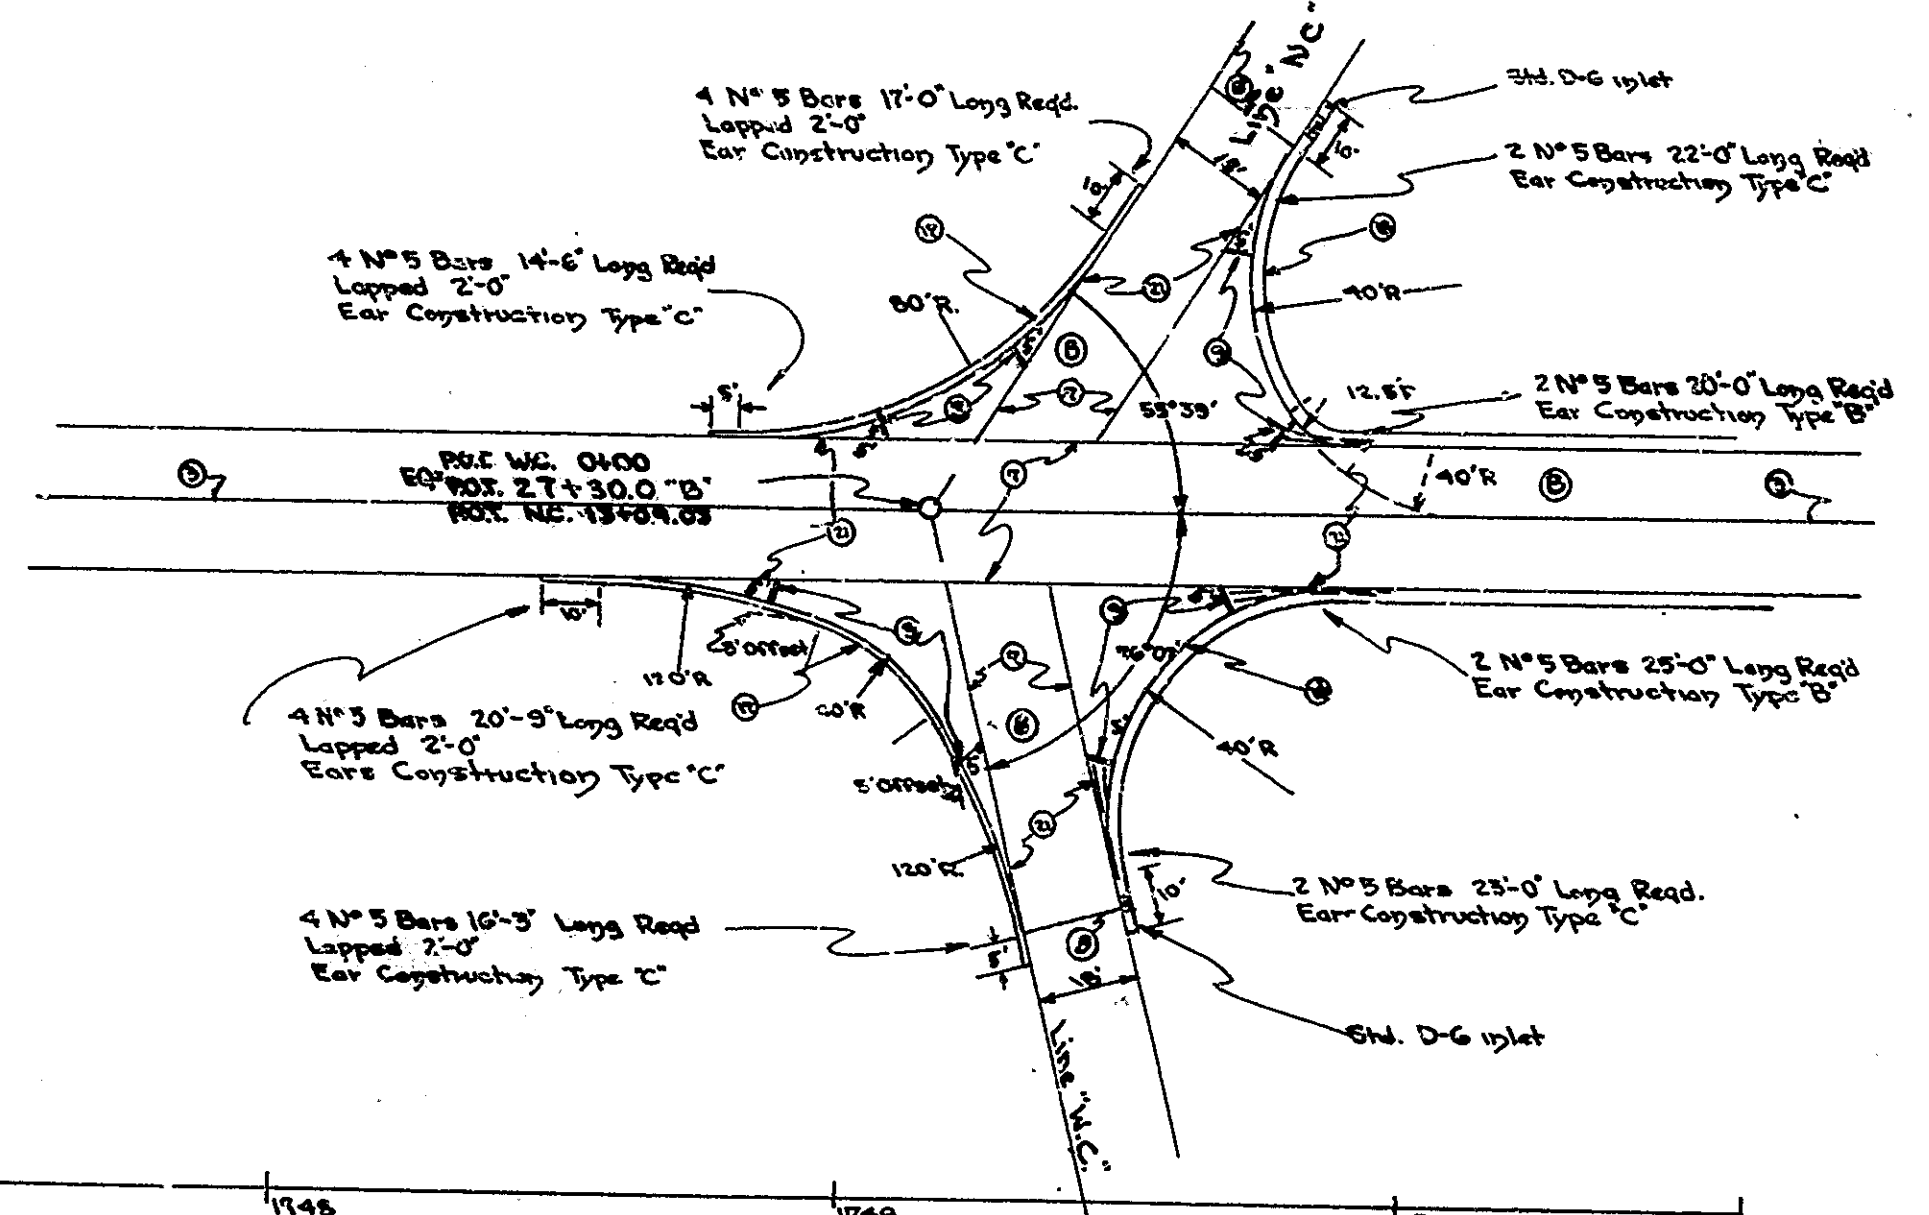 Line "NC"
Std. D-6 inlet
4 Nº 5 Bars 17'-0" Long Reqd.
Lapped 2'-0"
Ear Construction Type "C"
10'
18'
10'
2 Nº 5 Bars 22'-0" Long Reqd
Ear Construction Type "C"
4 Nº 5 Bars 14'-6" Long Reqd
Lapped 2'-0"
Ear Construction Type "C"
80'R.
21
40'R
5'
B
55°39'
12.5'r
2 Nº 5 Bars 20'-0" Long Reqd
Ear Construction Type "B"
3
P.O.T. W.C. 0+00
EQ= P.O.T. 27+30.0 "B"
P.O.T. N.C. 13+09.03
7
40'R
B
21
21
10'
5' Offset
120'R
76°07'
2 Nº 5 Bars 25'-0" Long Reqd
Ear Construction Type "B"
4 Nº 5 Bars 20'-9" Long Reqd
Lapped 2'-0"
Ears Construction Type "C"
17
40'R
5'
5' Offset
21
120'R.
10'
2 Nº 5 Bars 23'-0" Long Reqd.
Ear Construction Type "C"
4 Nº 5 Bars 16'-3" Long Reqd
Lapped 2'-0"
Ear Construction Type "C"
5'
B
18'
Std. D-6 inlet
Line "W.C."
1748
1749